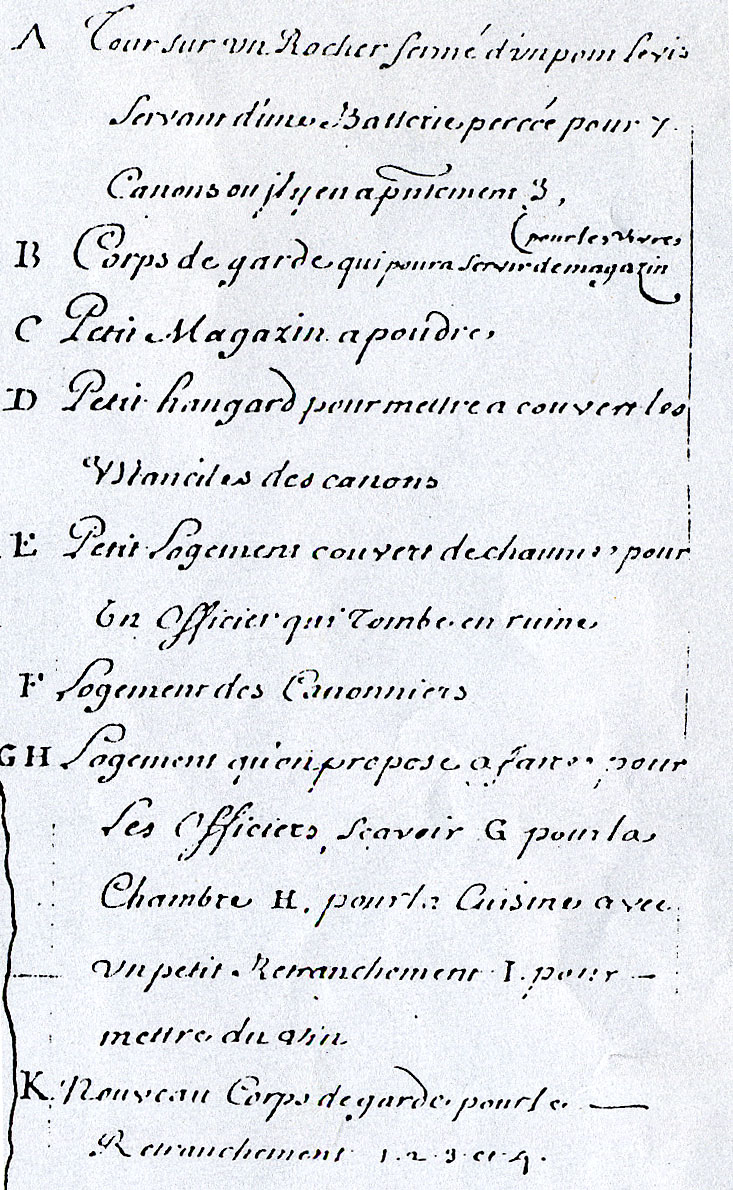 A Tour sur un Rocher fermé d'un pont levis
Servant d'une Batterie percée pour 7
Canons ou jl y en a pntement 3,
(pour les vivres
B Corps de garde qui poura servir de magazin
C Petit Magazin a poudre
D Petit hangard pour mettre a couvert les
Vstanciles des canons
E Petit Logement couvert de chaume pour
Un Officier qui Tombe en ruine
F Logement des Canonniers
G H Logement qu'on propose a faire pour
Les Officiers, Scavoir G pour la
Chambre H. pour la Cuisine avec
un petit Retranchement I. pour —
mettre du vin
K. Nouveau Corps de garde pour le —
Retranchement 1. 2. 3. et 4.